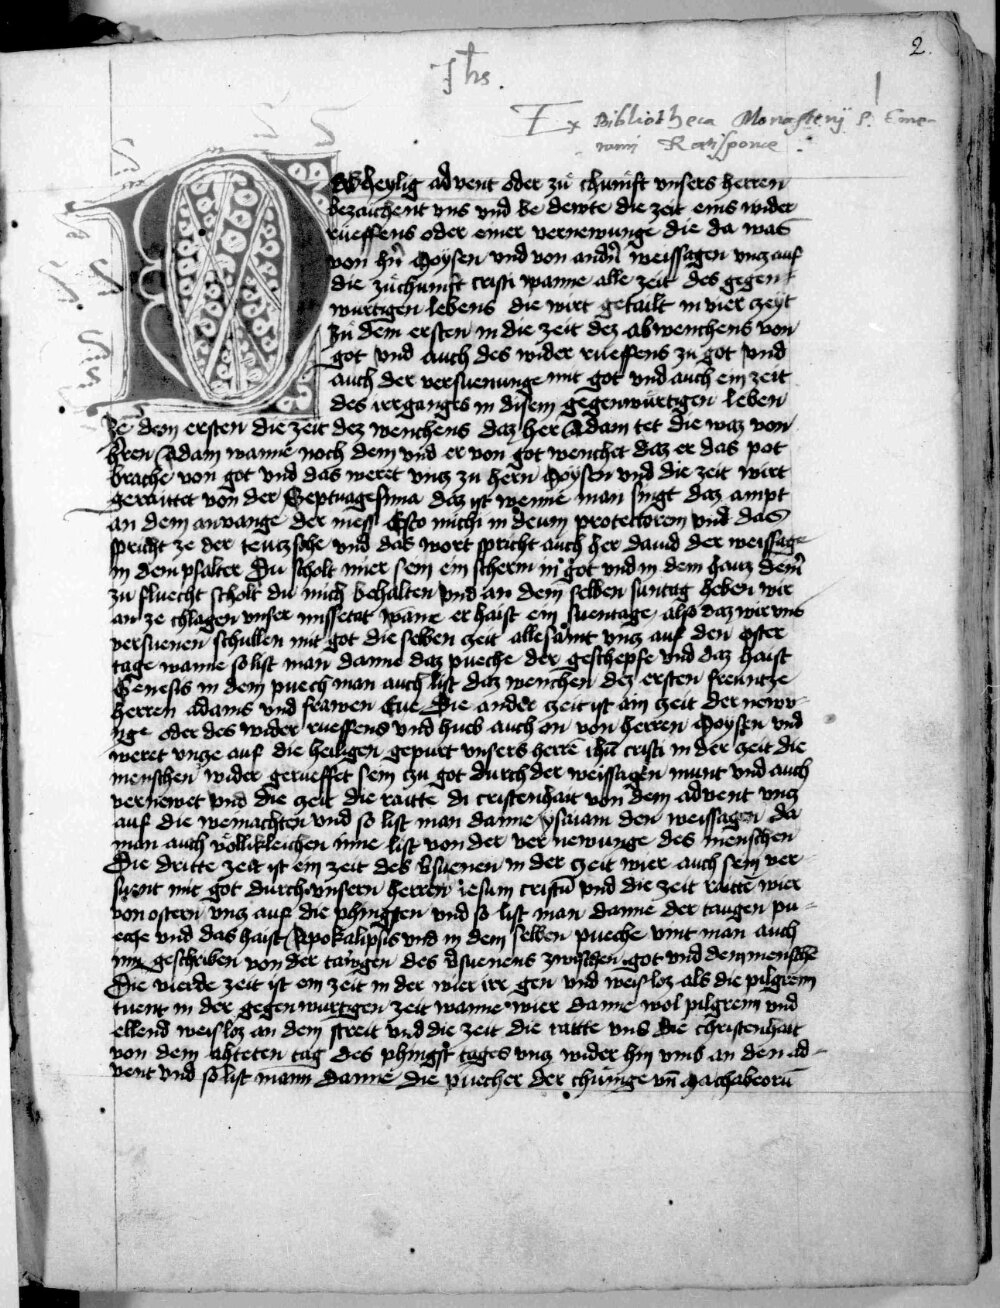 2.
Jhs.
Ex Bibliotheca Monasterij S. Eme-
rami Ratisponae
DEr heylig advent oder zů chunft unsers herren
bezaichent uns und be dewte die zeit eins wider
rüeffens oder einer vernewunge die da was
von hern Moysen und von andern weissagen uncz auf
die zůchunft cristi wanne alle zeit des gegen
wurtigen lebens die wirt getailt in vier czeyt
zu dem ersten in die zeit dez abwenchens von
got und auch des wider rueffens zu got und
auch der versuenunge mit got und auch ein zeit
des irrganges in disem gegenwürtigen leben
Ze dem ersten die zeit dez wenchens daz her Adam tet die waz von
hren Adam wanne noch dem und er von got wenchet daz er das pot
brache von got und das weret uncz zu hern Moysen und die zeit wirt
geraittet von der Septuagesima daz ist wenne man singt daz ampt
an dem anvange der mess Esto michi in deum protectorem und das
spricht ze der teutzsche und das wort spricht auch her david der weissage
in dem psalter Du scholt mier sein ein scherm in got und in dem hauz dein
zu fluecht scholt du mich behalten und an dem selben suntag heben wir
an ze chlagen unser missetat wane er haist ein suentage also daz wir uns
versuenen schullen mit got die selben zeit allesamt uncz auf den oster
tage wanne so list man danne daz pueche der geschepfe und daz haist
Genesis in dem puech man auch list daz wenchen dez ersten
herren adams und frawen Eve Die ander zeit ist ain zeit der newu
nge oder des wider rueffens und hueb auch an von herren Moysen und
weret uncze auf die heiligen gepurt unsers herre ihu cristi in der zeit die
menschen wider gerueffet sein czu got durch der weissagen munt und auch
vernewet und die zeit die raitte di cristenhait von dem advent uncz
auf die weinachten und so list man danne ysaiam den weissagen da
man auch völlikleichen inne list von der ver newunge des menschen
Die dritte zeit ist ein zeit des vsuenen in der czeit wier auch sein ver
suent mit got durch unsern herren iesum cristu und die zeit raitte wier
von ostern uncz auf die phingsten und so list man danne der taugen pu-
eche und das haist Apokalipsis und in dem selben pueche vint man auch
inn geschriben von der tawgen des vsuenens zwischen got und dem mensche
Die vierde zeit ist ein zeit in der wier irr gen und weisloz als die pilgrem
tuent in der gegenwurtgen zeit wanne wier danne wol pilgrem und
ellend weisloz an dem streit und die zeit die raitte uns die christenhait
von dem achteten tag des phingst tages uncz wider hin umb an den ad-
vent und so list mann danne die puecher der chünige un Machabeoru